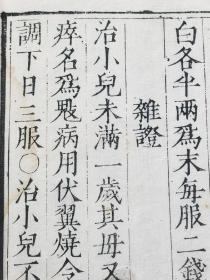 白各半兩爲末每服二錢
雜證
治小兒未滿一歲其母又
瘁名爲鬾病用伏翼燒令
調下日三服○治小兒不